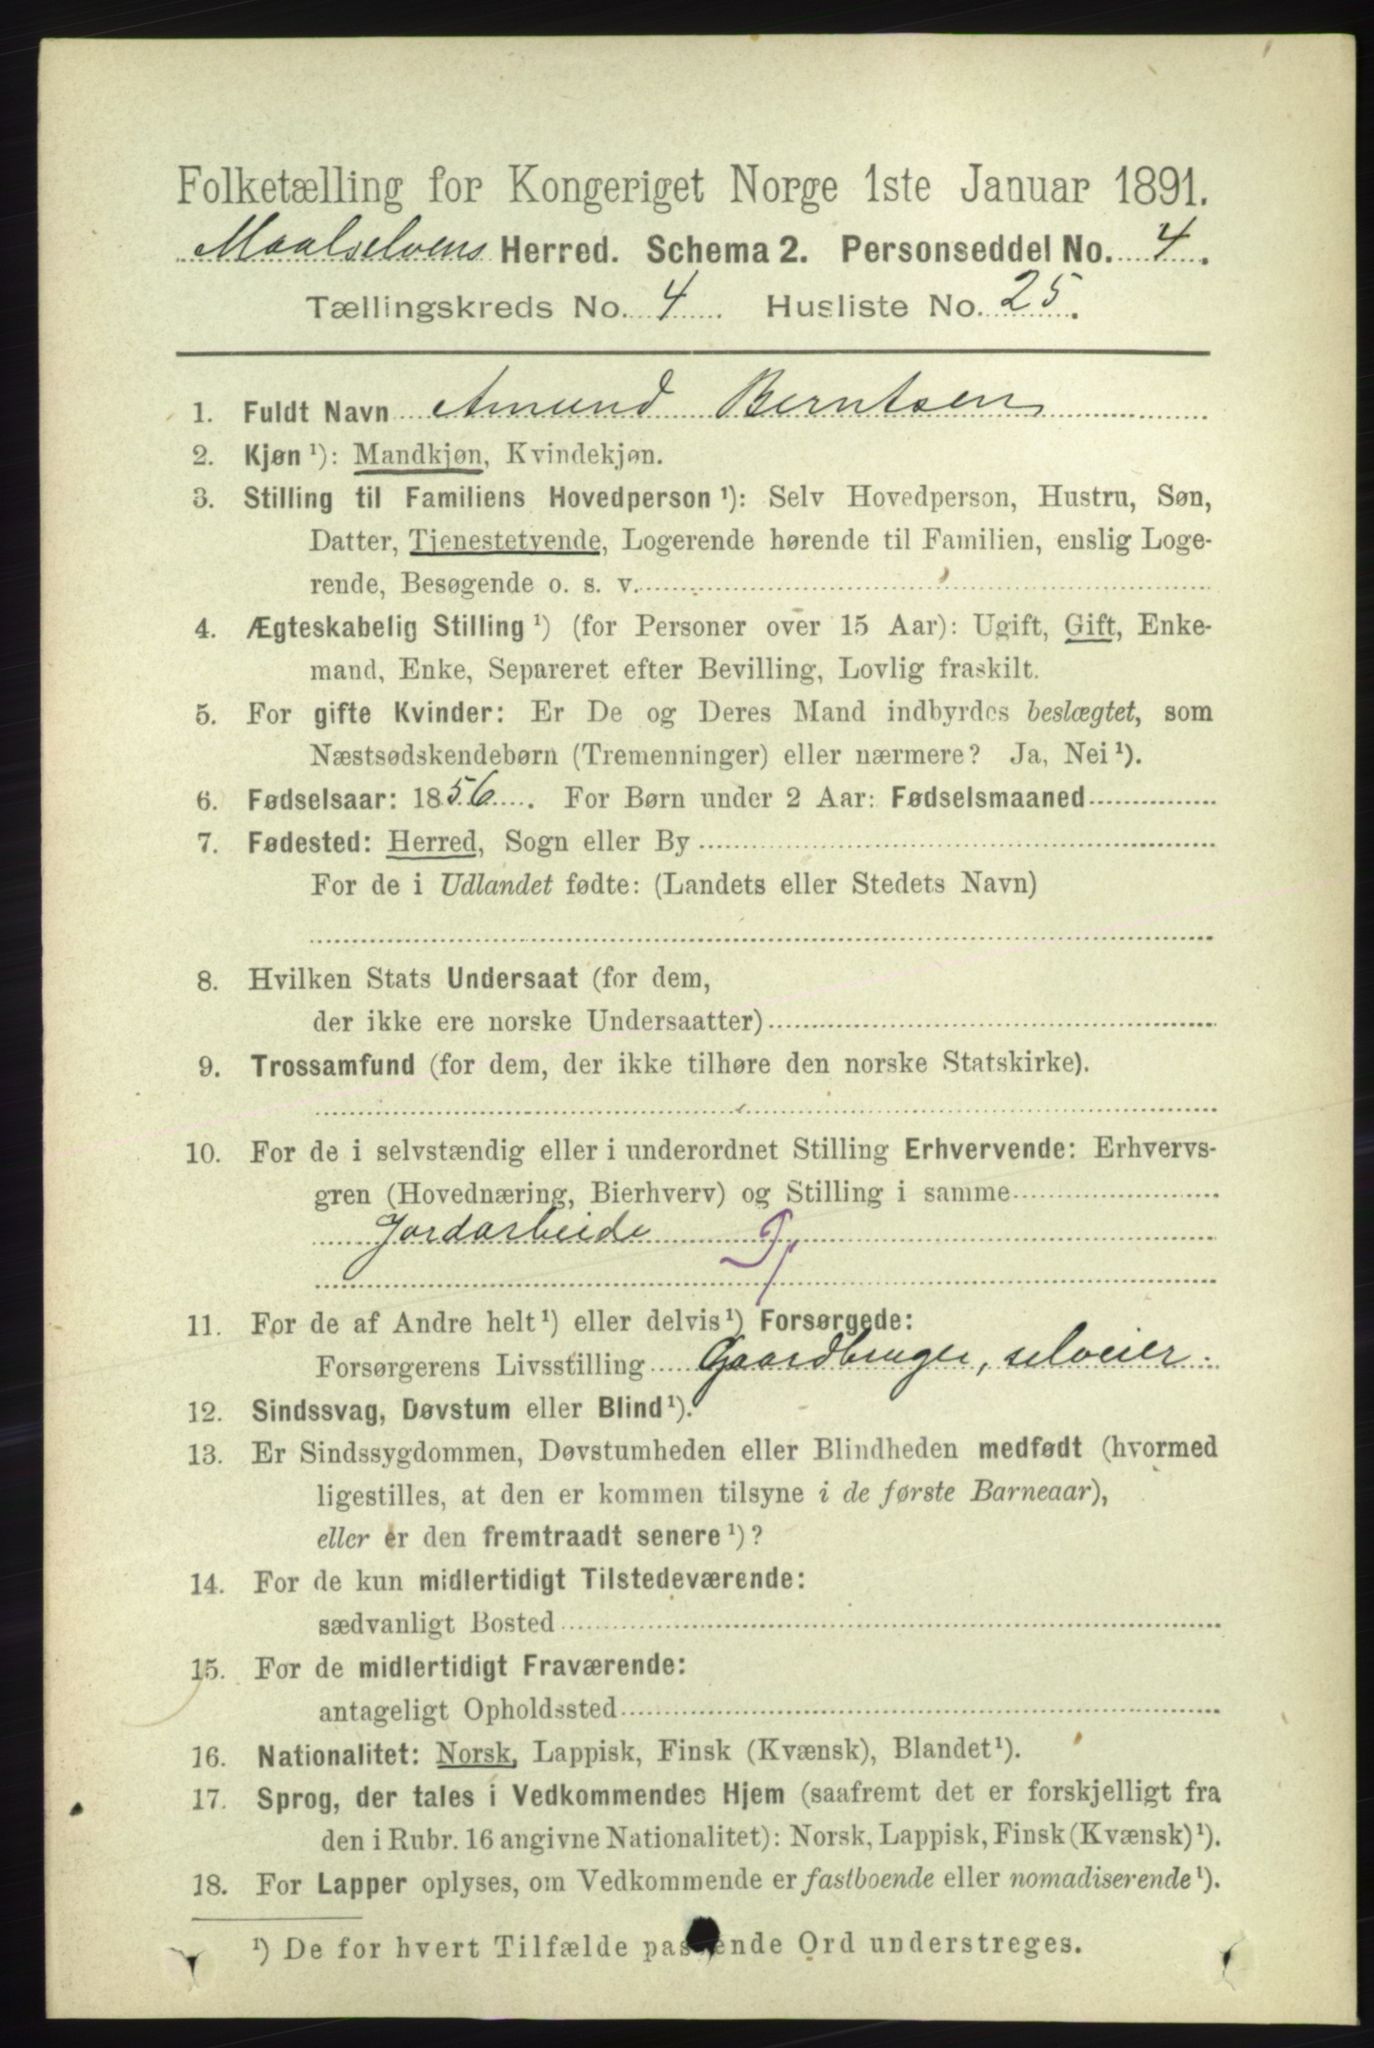 Folketælling for Kongeriget Norge 1ste Januar 1891.
Maalselvens Herred. Schema 2. Personseddel No. 4.
Tællingskreds No. 4 Husliste No. 25.
1. Fuldt Navn Amund Berntsen
2. Kjøn ¹): Mandkjøn, Kvindekjøn.
3. Stilling til Familiens Hovedperson ¹): Selv Hovedperson, Hustru, Søn,
Datter, Tjenestetyende, Logerende hørende til Familien, enslig Loge-
rende, Besøgende o. s. v.
4. Ægteskabelig Stilling ¹) (for Personer over 15 Aar): Ugift, Gift, Enke-
mand, Enke, Separeret efter Bevilling, Lovlig fraskilt.
5. For gifte Kvinder: Er De og Deres Mand indbyrdes beslægtet, som
Næstsødskendebørn (Tremenninger) eller nærmere? Ja, Nei ¹).
6. Fødselsaar: 1856. For Børn under 2 Aar: Fødselsmaaned
7. Fødested: Herred, Sogn eller By
For de i Udlandet fødte: (Landets eller Stedets Navn)
8. Hvilken Stats Undersaat (for dem,
der ikke ere norske Undersaatter)
9. Trossamfund (for dem, der ikke tilhøre den norske Statskirke).
10. For de i selvstændig eller i underordnet Stilling Erhvervende: Erhvervs-
gren (Hovednæring, Bierhverv) og Stilling i samme
Jordarbeide
11. For de af Andre helt ¹) eller delvis ¹) Forsørgede:
Forsørgerens Livsstilling Gaardbruger, selveier.
12. Sindssvag, Døvstum eller Blind ¹).
13. Er Sindssygdommen, Døvstumheden eller Blindheden medfødt (hvormed
ligestilles, at den er kommen tilsyne i de første Barneaar),
eller er den fremtraadt senere ¹)?
14. For de kun midlertidigt Tilstedeværende:
sædvanligt Bosted
15. For de midlertidigt Fraværende:
antageligt Opholdssted
16. Nationalitet: Norsk, Lappisk, Finsk (Kvænsk), Blandet ¹).
17. Sprog, der tales i Vedkommendes Hjem (saafremt det er forskjelligt fra
den i Rubr. 16 angivne Nationalitet): Norsk, Lappisk, Finsk (Kvænsk) ¹).
18. For Lapper oplyses, om Vedkommende er fastboende eller nomadiserende ¹).
¹) De for hvert Tilfælde passende Ord understreges.